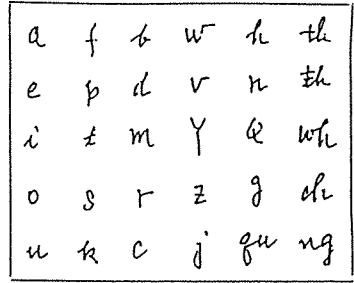 a f b w h th
e p d v n th
i t m Y wh
o s r z g ch
u k c j qu ng